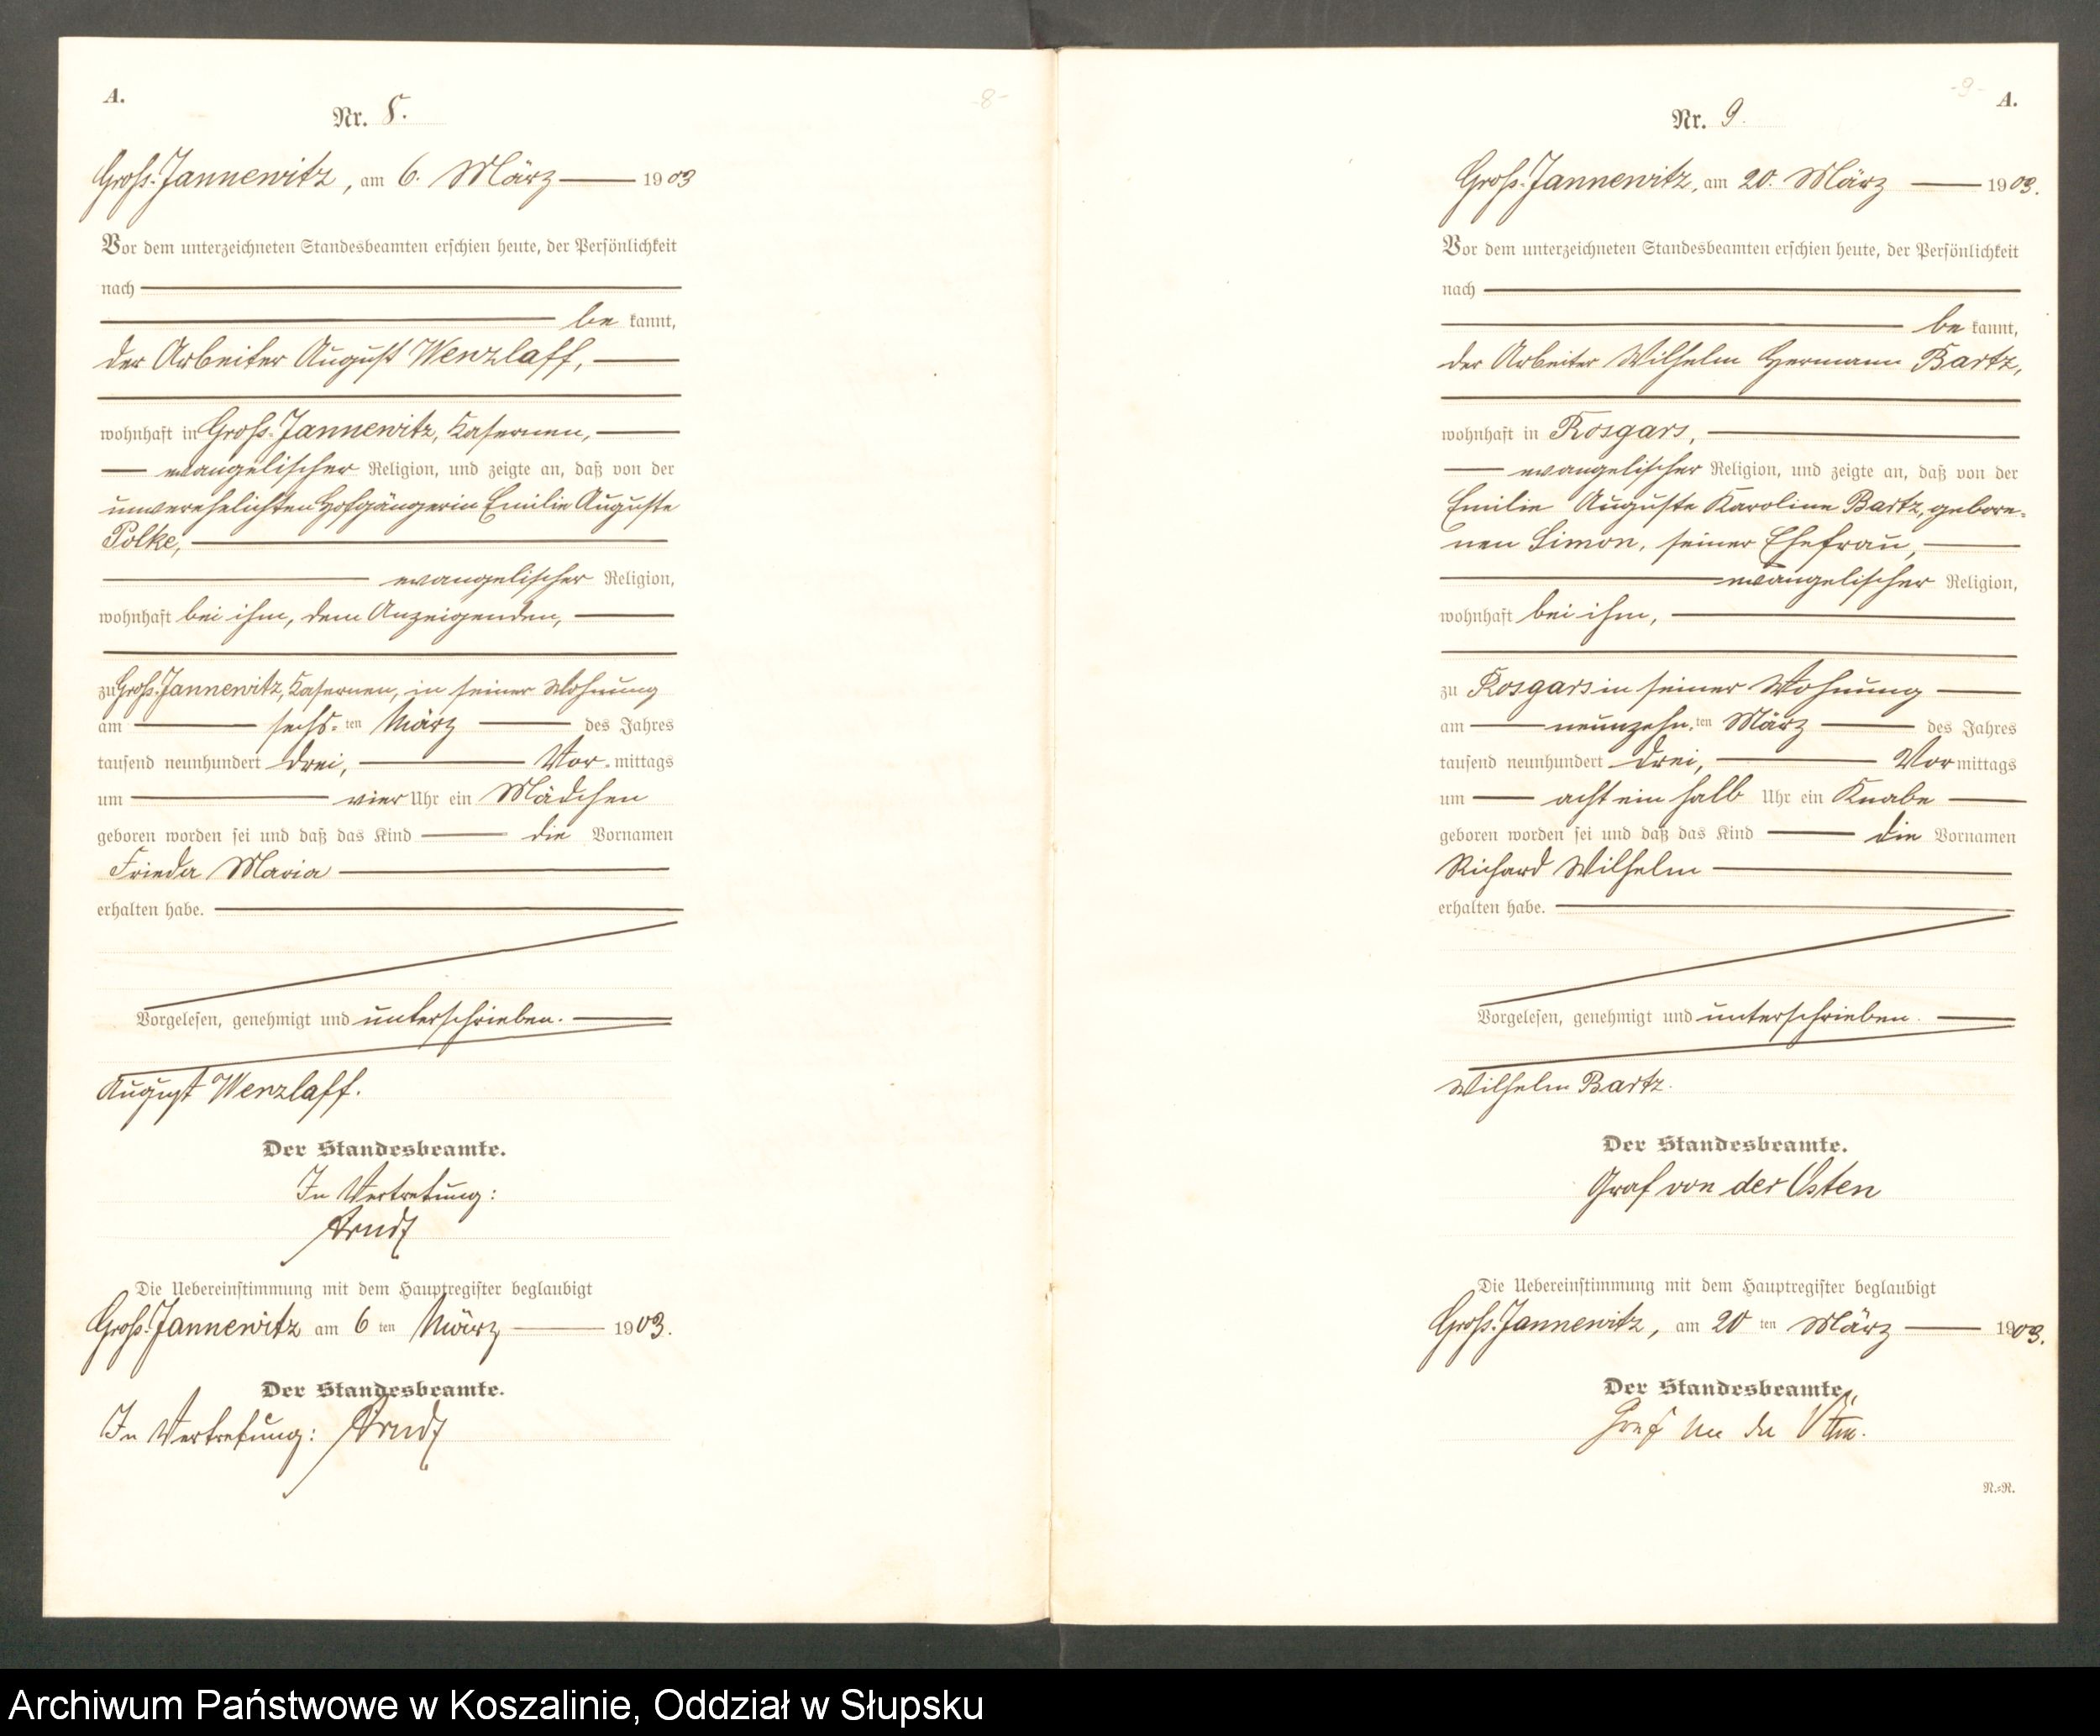 A.
Nr. 8.
-8-
Groß-Jannewitz, am 6. März 1903
Vor dem unterzeichneten Standesbeamten erschien heute, der Persönlichkeit
nach
be kannt,
der Arbeiter August Wenzlaff,
wohnhaft in Groß-Jannewitz, Kasernen,
evangelischer Religion, und zeigte an, daß von der
unverehelichten Hofgängerin Emilie Auguste
Polke,
evangelischer Religion,
wohnhaft bei ihm, dem Anzeigenden,
zu Groß-Jannewitz, Kasernen, in seiner Wohnung
am sechs-ten März des Jahres
tausend neunhundert drei, Vor-mittags
um vier Uhr ein Mädchen
geboren worden sei und daß das Kind die Vornamen
Frieda Maria
erhalten habe.
Vorgelesen, genehmigt und unterschrieben.
August Wenzlaff.
Der Standesbeamte.
In Vertretung:
Arndt
Die Uebereinstimmung mit dem Hauptregister beglaubigt
Groß-Jannewitz am 6 ten März 1903.
Der Standesbeamte.
In Vertretung: Arndt
-9-
A.
Nr. 9.
Groß-Jannewitz, am 20. März 1903.
Vor dem unterzeichneten Standesbeamten erschien heute, der Persönlichkeit
nach
be kannt,
der Arbeiter Wilhelm Hermann Bartz,
wohnhaft in Rosgars,
evangelischer Religion, und zeigte an, daß von der
Emilie Auguste Karoline Bartz, gebore-
nen Simon, seiner Ehefrau,
evangelischer Religion,
wohnhaft bei ihm,
zu Rosgars in seiner Wohnung
am neunzehn-ten März des Jahres
tausend neunhundert drei, Vormittags
um acht ein halb Uhr ein Knabe
geboren worden sei und daß das Kind die Vornamen
Richard Wilhelm
erhalten habe.
Vorgelesen, genehmigt und unterschrieben.
Wilhelm Bartz.
Der Standesbeamte.
Graf von der Osten
Die Uebereinstimmung mit dem Hauptregister beglaubigt
Groß-Jannewitz, am 20 ten März 1903.
Der Standesbeamte.
Graf von der Osten.
N.=R.
Archiwum Państwowe w Koszalinie, Oddział w Słupsku